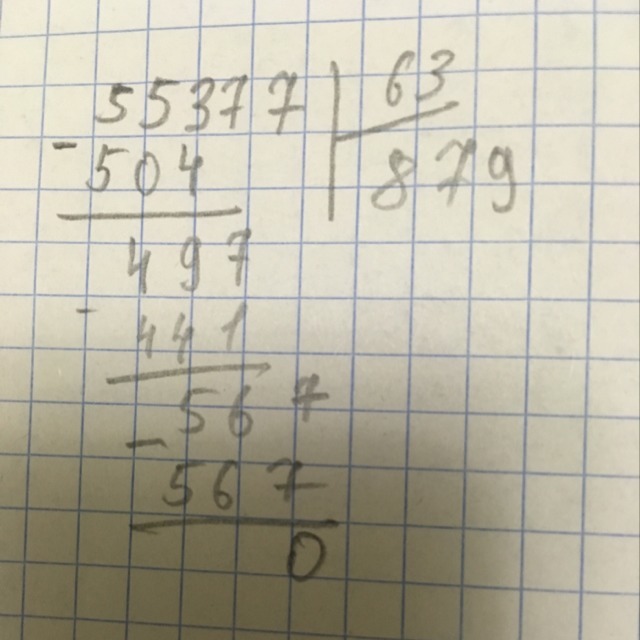 55377 | 63
- 504 | 879
497
- 441
567
- 567
0